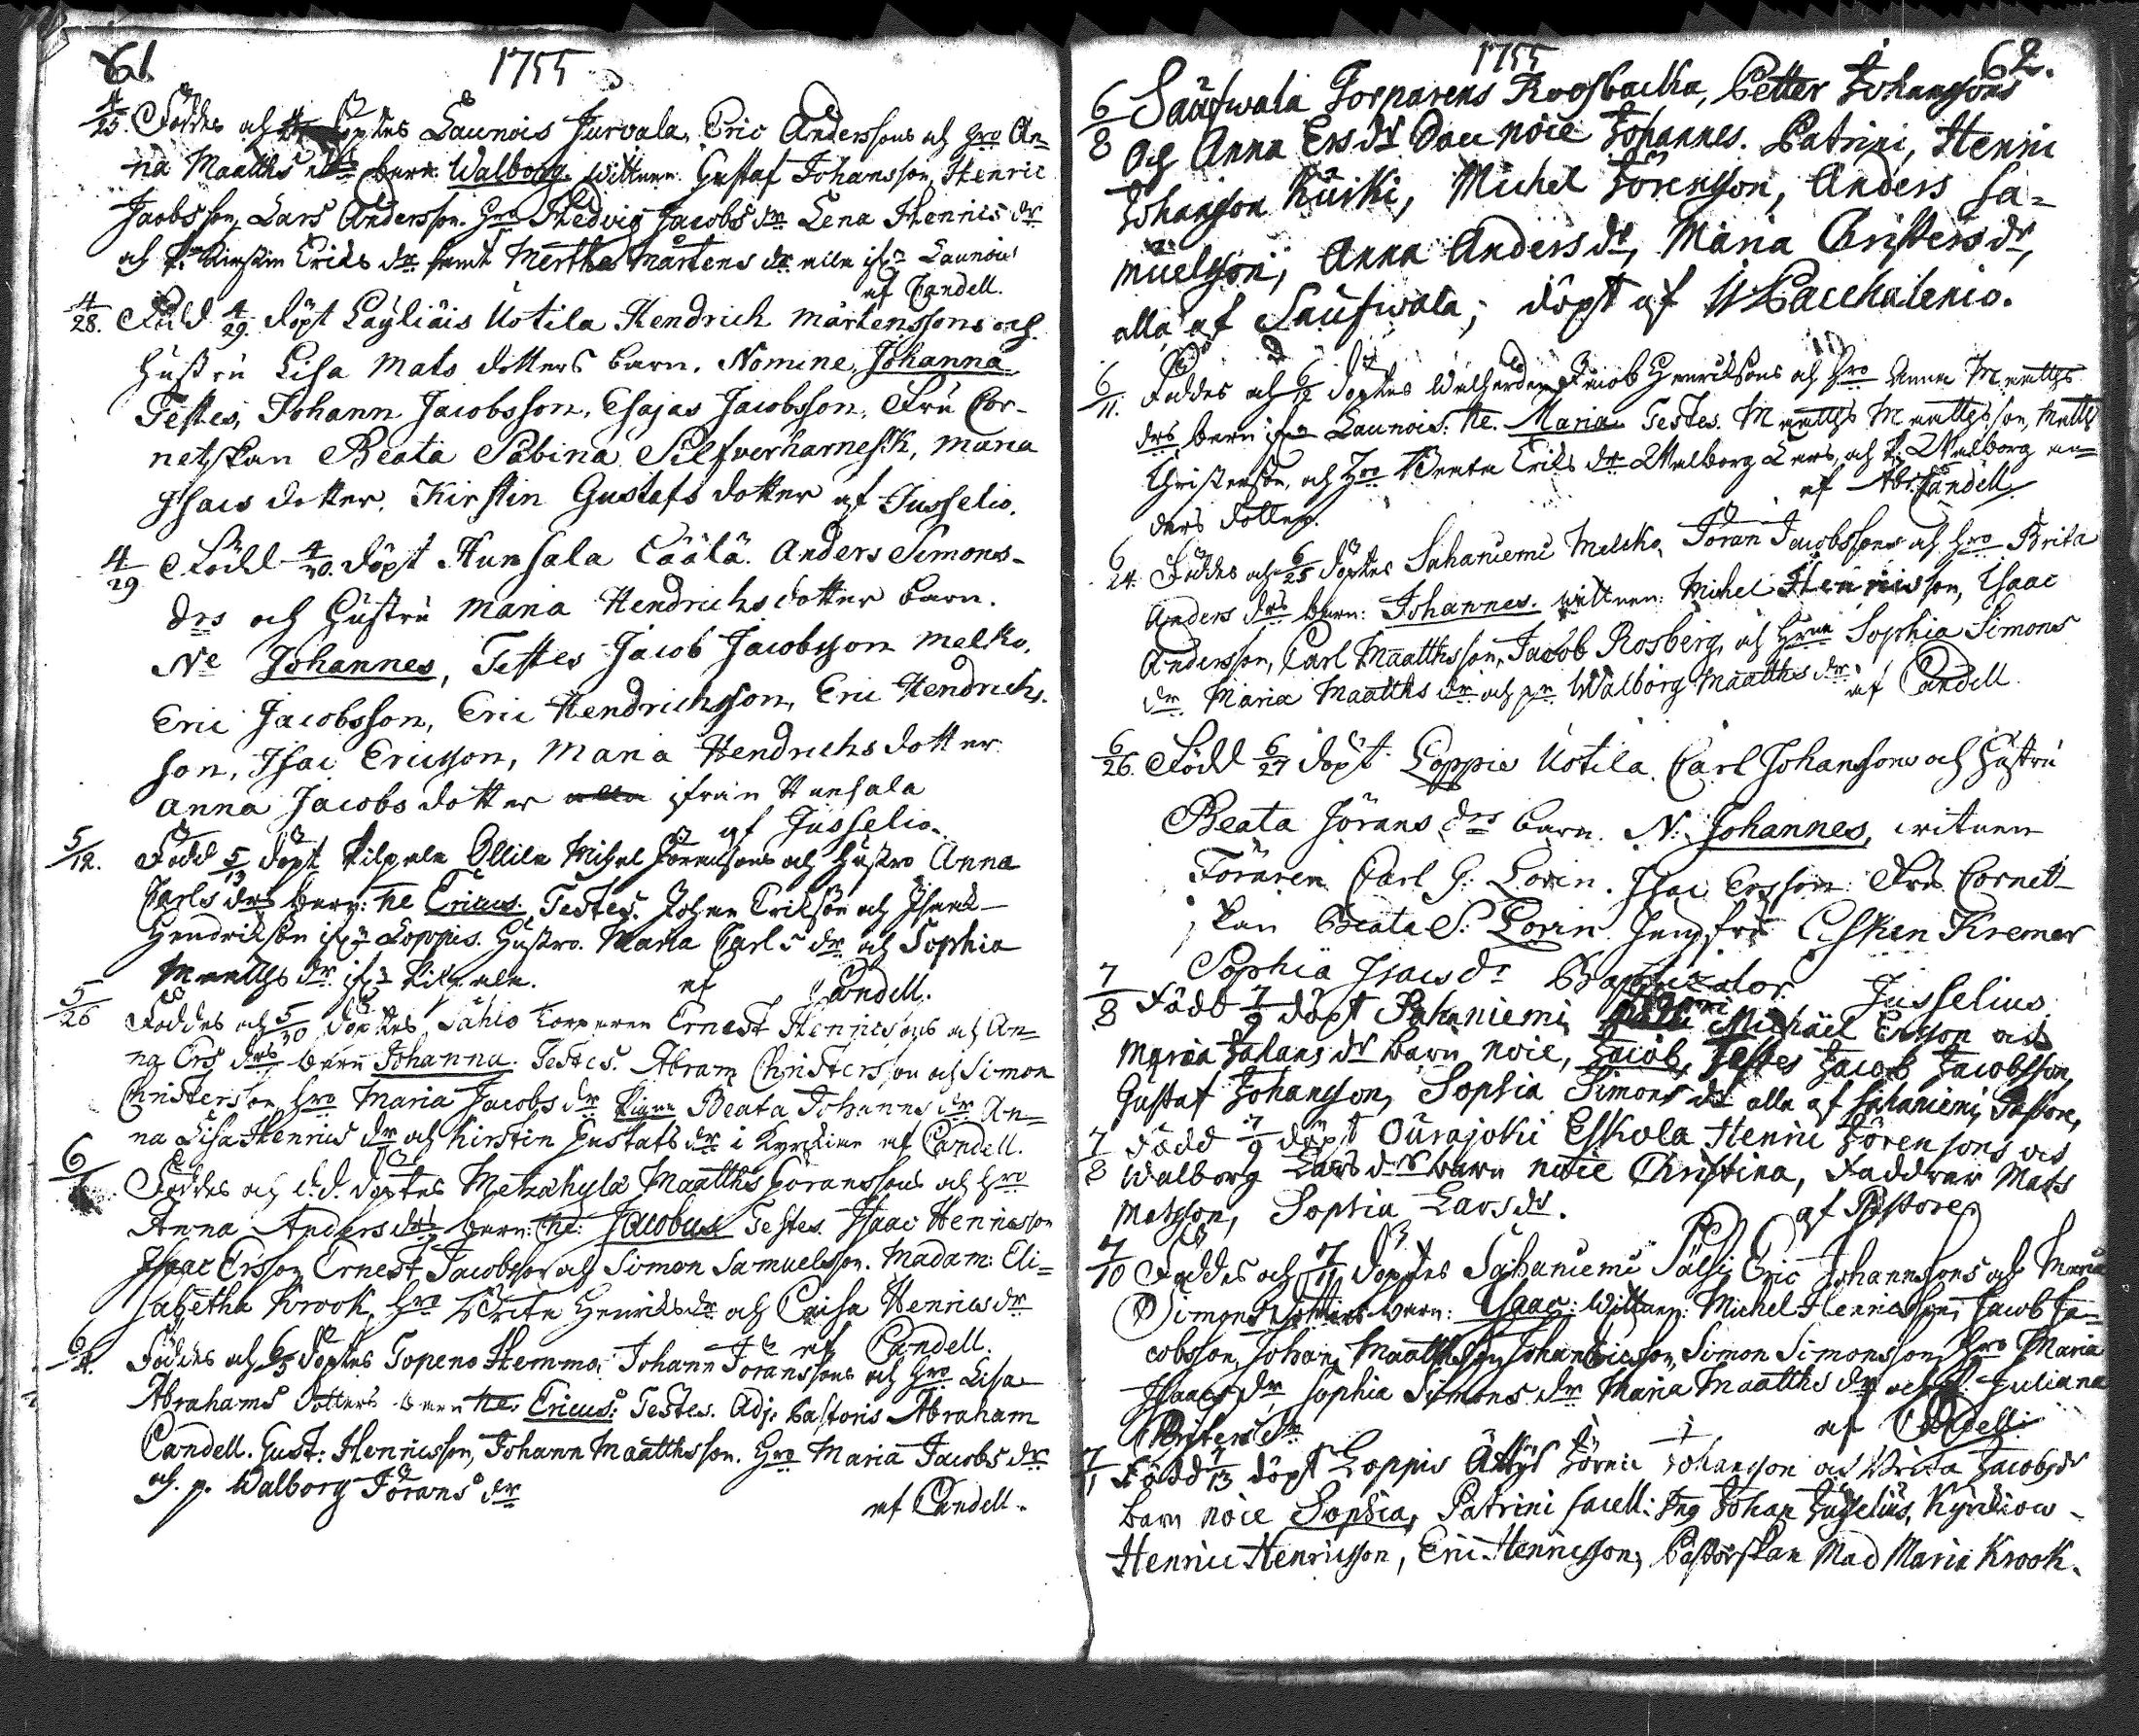 61
1755
4/25. Föddes och döptes Launois Jurvala, Eric Anderssons och Hro An=
na Maatths drs barn. Walborg. wittnen. Gustaf Johansson, Henric
Jacobsson, Lars Andersson. Hro Hedvig Jacobs dr Lena Henrics dr
och p. Kirstin Eriks dr samt Mertha Mårtens dr alla ifr: Launois
af Candell.
4/28. Född 4/29. döpt Läyliäis Uotila Hendrich Mårtenssons och
Hustru Lisa Mats dotters barn. Nomine, Johanna,
Testes, Johann Jacobsson, Esajas Jacobsson, Fru Cor-
netskan Beata Sabina Silfverharnesk, Maria
Isacs dotter, Kirstin Gustafs dotter af Jusselio.
4/29 Född 4/30. döpt Hunsala Anders Simons-
drs och Hustru Maria Hendrichsdotter barn.
Ne Johannes, Testes Jacob Jacobsson Melko,
Eric Jacobsson, Eric Hendrichsson, Eric Hendrichs-
son, Isac Ericsson, Maria Hendrichsdotter
Anna Jacobs dotter ifrån Hunsala
af Jusselio.
5/12. Född 5/13 döpt Pilpala Ollila Michel Jöranssons och Hustro Anna
Carls drs barn: ne Ericus. Testes. Johan Erikson och Isaac
Hendrikson ifrn Loppis. Hustro. Maria Carls dr och Sophia
Maatths dr ifrn Pilpala. af Candell.
5/26 Föddes och 5/30 döptes Sahlo torparen Ernest Henricsons och An=
na Ers drs barn Johanna. Testes. Abram Christersson och Simon
Christerson, Hro Maria Jacobs dr Pigan Beata Johans dr An=
na Lisa Henrics dr och Kirstin Gustafs dr i Kyrckian af Candell.
6/ Föddes och d.d. döptes Metzäkylä Maatths Göranssons och Hro
Anna Anders drs barn: ne: Jacobus Testes. Isaac Henricsson
Isaac Ersson, Ernest Jacobsson och Simon Samuelsson. Madam: Eli=
sabetha Krook, Hro Brita Henriks dr och Caisa Henrics dr
af Candell.
6/4. Föddes och 6/5 döptes Topeno Hemmo, Johann Jöranssons och Hro Lisa
Abrahams dotters barn ne. Ericus: Testes. Adj. Pastoris Abraham
Candell. Gust: Henricsson, Johann Maatthsson. Hro Maria Jacobs dr
och p. Walborg Jörans dr
af Candell.
1755
62.
6/8 Sauswala Torparens Roosbacka, Petter Johanssons
och Anna Ers dr barn noie Johannes. Patrini, Henric
Johanson Kuiski, Michel Jörensson, Anders Sa-
muelsson, Anna Anders dr, Maria Christers dr,
alla af Sauswala; döpt af Paccalenio.
6/11. Föddes och 6/12 döptes Jacob Henricksons och Hro Anna Maatths
drs barn ifrn Launois: Ne. Maria. Testes. Maatths Maatthsson, Matth
Christerson, och Hro Beata Eriks dr Walborg Lars, och p. Walborg An=
ders dotter. af Abr: Candell
6/24 Föddes och 6/25 döptes Sahaniemi Melcko, Jöran Jacobssons och Hro Brita
Anders drs barn: Johannes. wittnen: Michel Henricsson, Isaac
Andersson, Carl Maatthsson, Jacob Rosberg, och Hrna Sophia Simons
dr Maria Maatths dr och pn Walborg Maatths dr af Candell.
6/26. Född 6/27 döpt Loppis Uotila. Carl Johanssons och Hustru
Beata Jörans drs barn. N: Johannes, witnen
Föraren Carl G: Lorin. Isac Ersson: Fru Cornett-
skan Beata S: Lorin Jungfru Kremer
Sophia Isacs dr Baptizator Jusselius
7/8 Född 7/9 döpt Sahaniemi Michäel Ersson och
Maria Johans dr barn noie, Jacob, Testes Jacob Jacobsson,
Gustaf Johansson, Sophia Simons dr alla af Sahaniemi, Pastore,
7/8 Född 7/9 döpt Ourajoki Eskola Henric Jörensons och
Walborg Lars drs barn noie Christina, Faddrar Mats
Matsson, Sophia Lars dr. af Pastore
7/10 Föddes och 7/11 döptes Sahaniemi Sälsi, Eric Johanssons och Maria
Simons dotters barn: Isaac: Wittnen: Michel Henricsson, Jacob Ja-
cobsson, Johan Maatthsson, Johan Ericsson, Simon Simonsson, Hro Maria
Isaacs dr, Sophia Simons dr Maria Maatths dr och p. Juliana
Christers dr af Candell.
7/1 Född 7/13 döpt Loppis Johansson och Brita Jacobs dr
barn noie Sophia, Patrini sacell: Ing Johan Jusselius, Kyrckiow-
Henric Henricsson, Eric Henricsson, Pastorskan Mad Maria Krook.